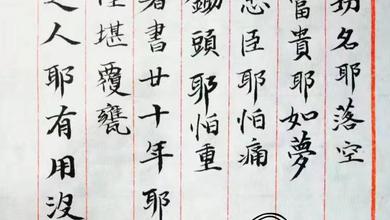 功名耶落空
富貴耶如夢
忠臣耶怕痛
鋤頭耶怕重
著書廿十年耶
僅堪覆甕
之人耶有用沒